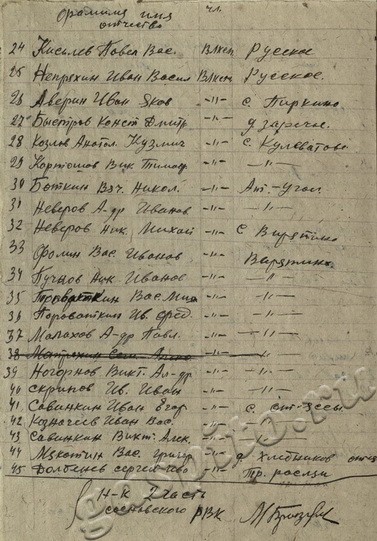 Фамилия имя чл.
отчество
24 Киселев Павел Вас. Влксм Русское
25 Непряхин Иван Васил Влксм Русское.
26 Аверин Иван Яков -"- с. Пиркино
27 Быстров Конст Дмитр -"- д Заречье.
28 Козлов Анатол. Кузмич -"- с. Куловатово
29 Картошов Вик. Тимоф -"- -"-
30 Боткин Вяч. Никол. -"- Ант.-Угол.
31 Неверов А-др Иванов -"- -"-
32 Неверов Ник. Михай -"- с Вирятино
33 Фомин Вас. Иванов -"- Вирятино
34 Ник Иванов -"- -"-
35 Вас. Мих -"- -"-
36 Пороваткин Ив. -"- -"-
37 Малахов А-др Павл. -"- -"-
38 -"-
39 Ногорнов Викт. Ал-др -"- -"-
40 Скрипов Ив. Иван -"- -"-
41 Савинкин Иван Егор -"- с.
42 Казначеев Иван Вас. -"-
43 Савинкин Викт. Алек. -"-
44 Вас. Григор -"- д. Хлебников
45 Сергей -"-
Н-к 2 часть
сосновского РВК